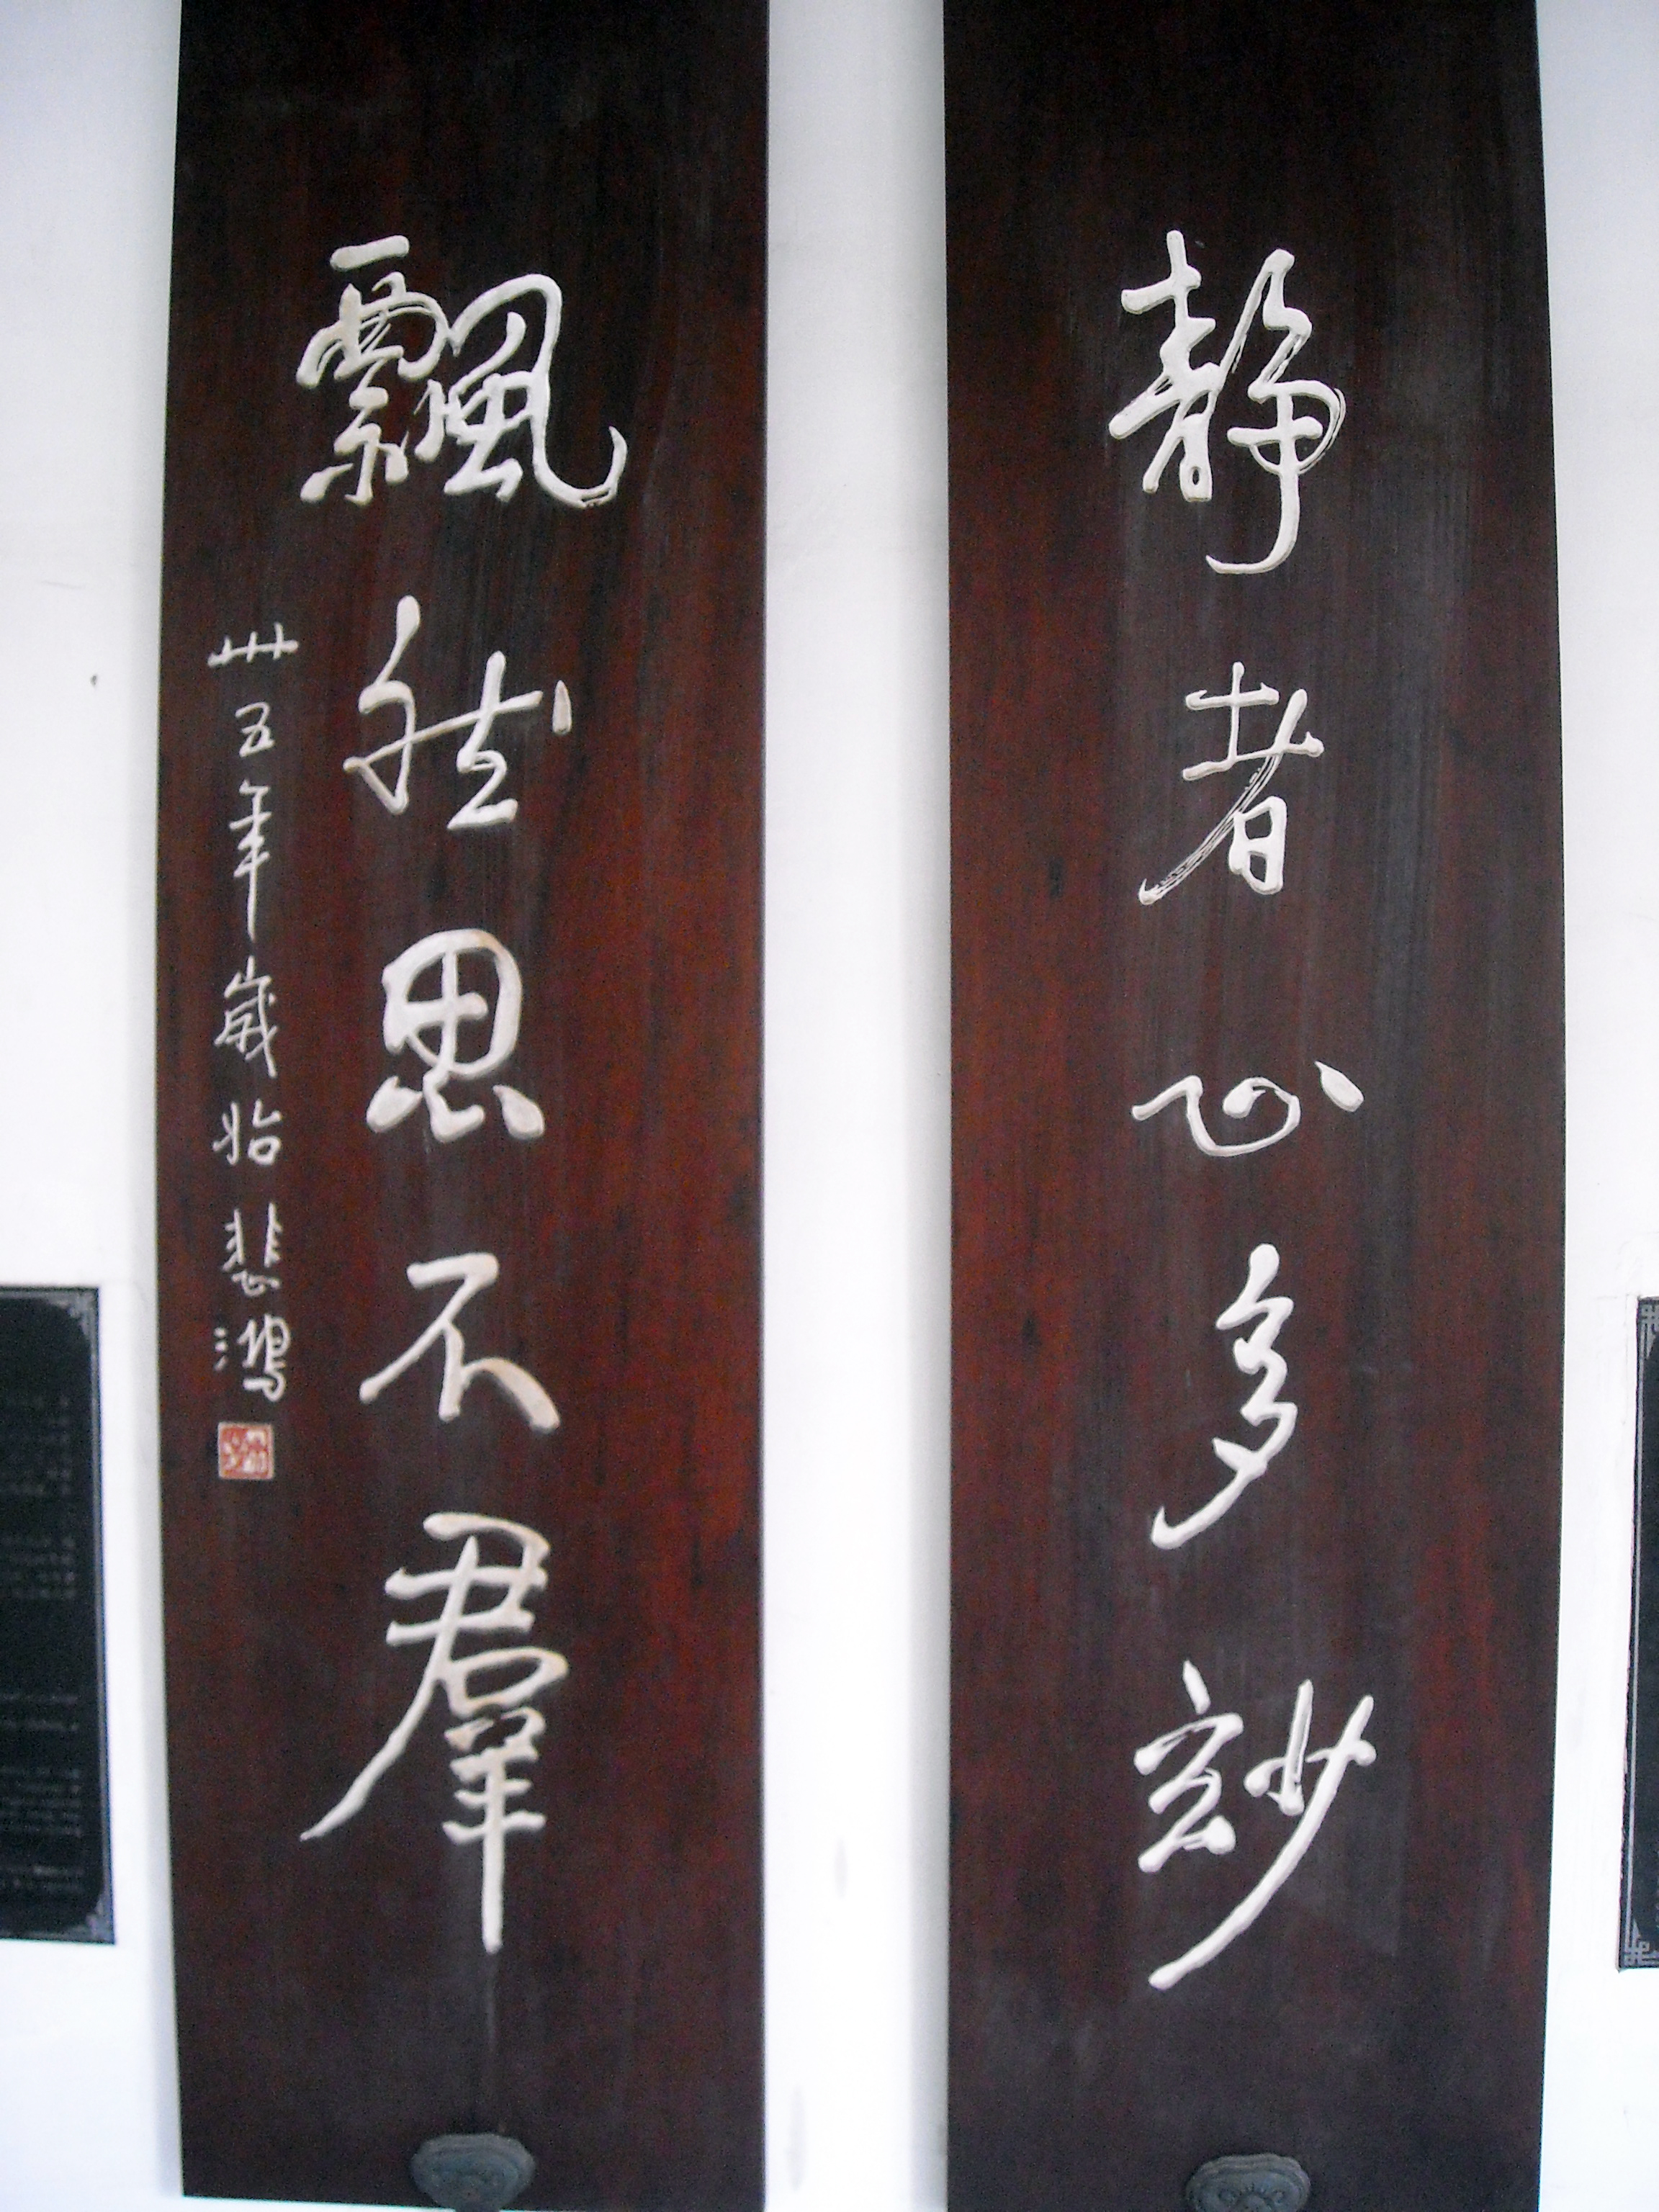 静者心多玅
飄然思不羣
卅五年歲始 悲鴻